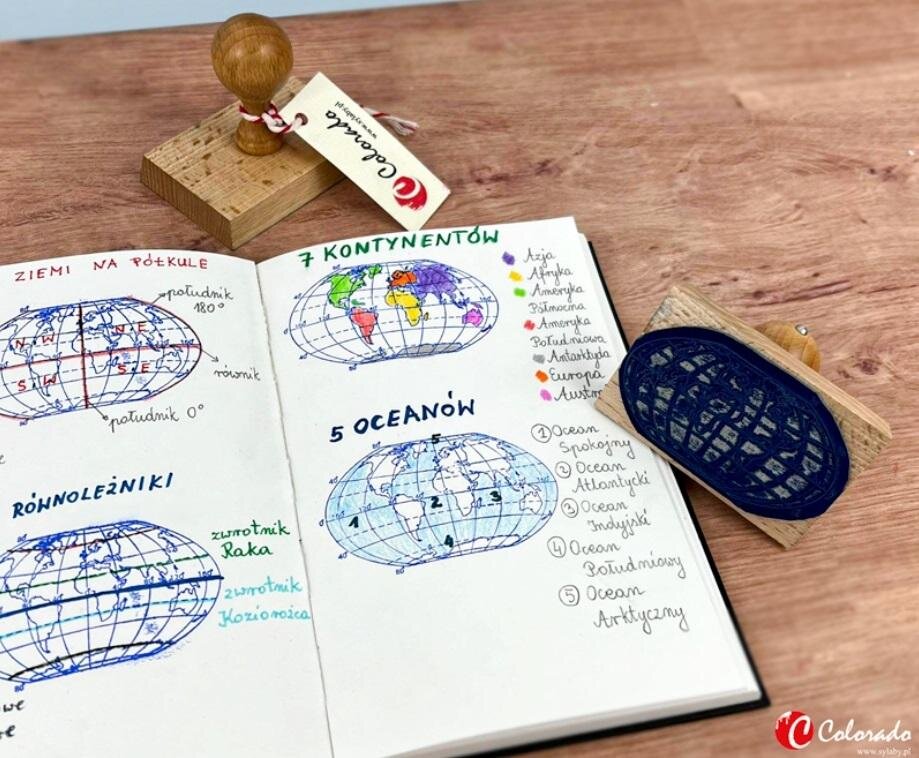 Colorado
www.sylaby.pl
ZIEMI NA PÓŁKULE
południk
180°
N.W
N.E
S.W
S.E
równik
południk 0°
RÓWNOLEŻNIKI
zwrotnik
Raka
zwrotnik
Koziorożca
7 KONTYNENTÓW
Azja
Afryka
Ameryka
Północna
Ameryka
Południowa
Antarktyda
Europa
5 OCEANÓW
5
1
2
3
4
① Ocean
Spokojny
② Ocean
Atlantycki
③ Ocean
Indyjski
④ Ocean
Południowy
⑤ Ocean
Arktyczny
Colorado
www.sylaby.pl